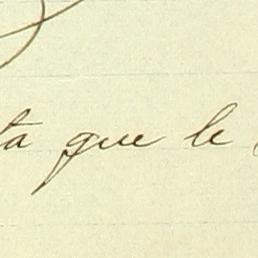 ta que le